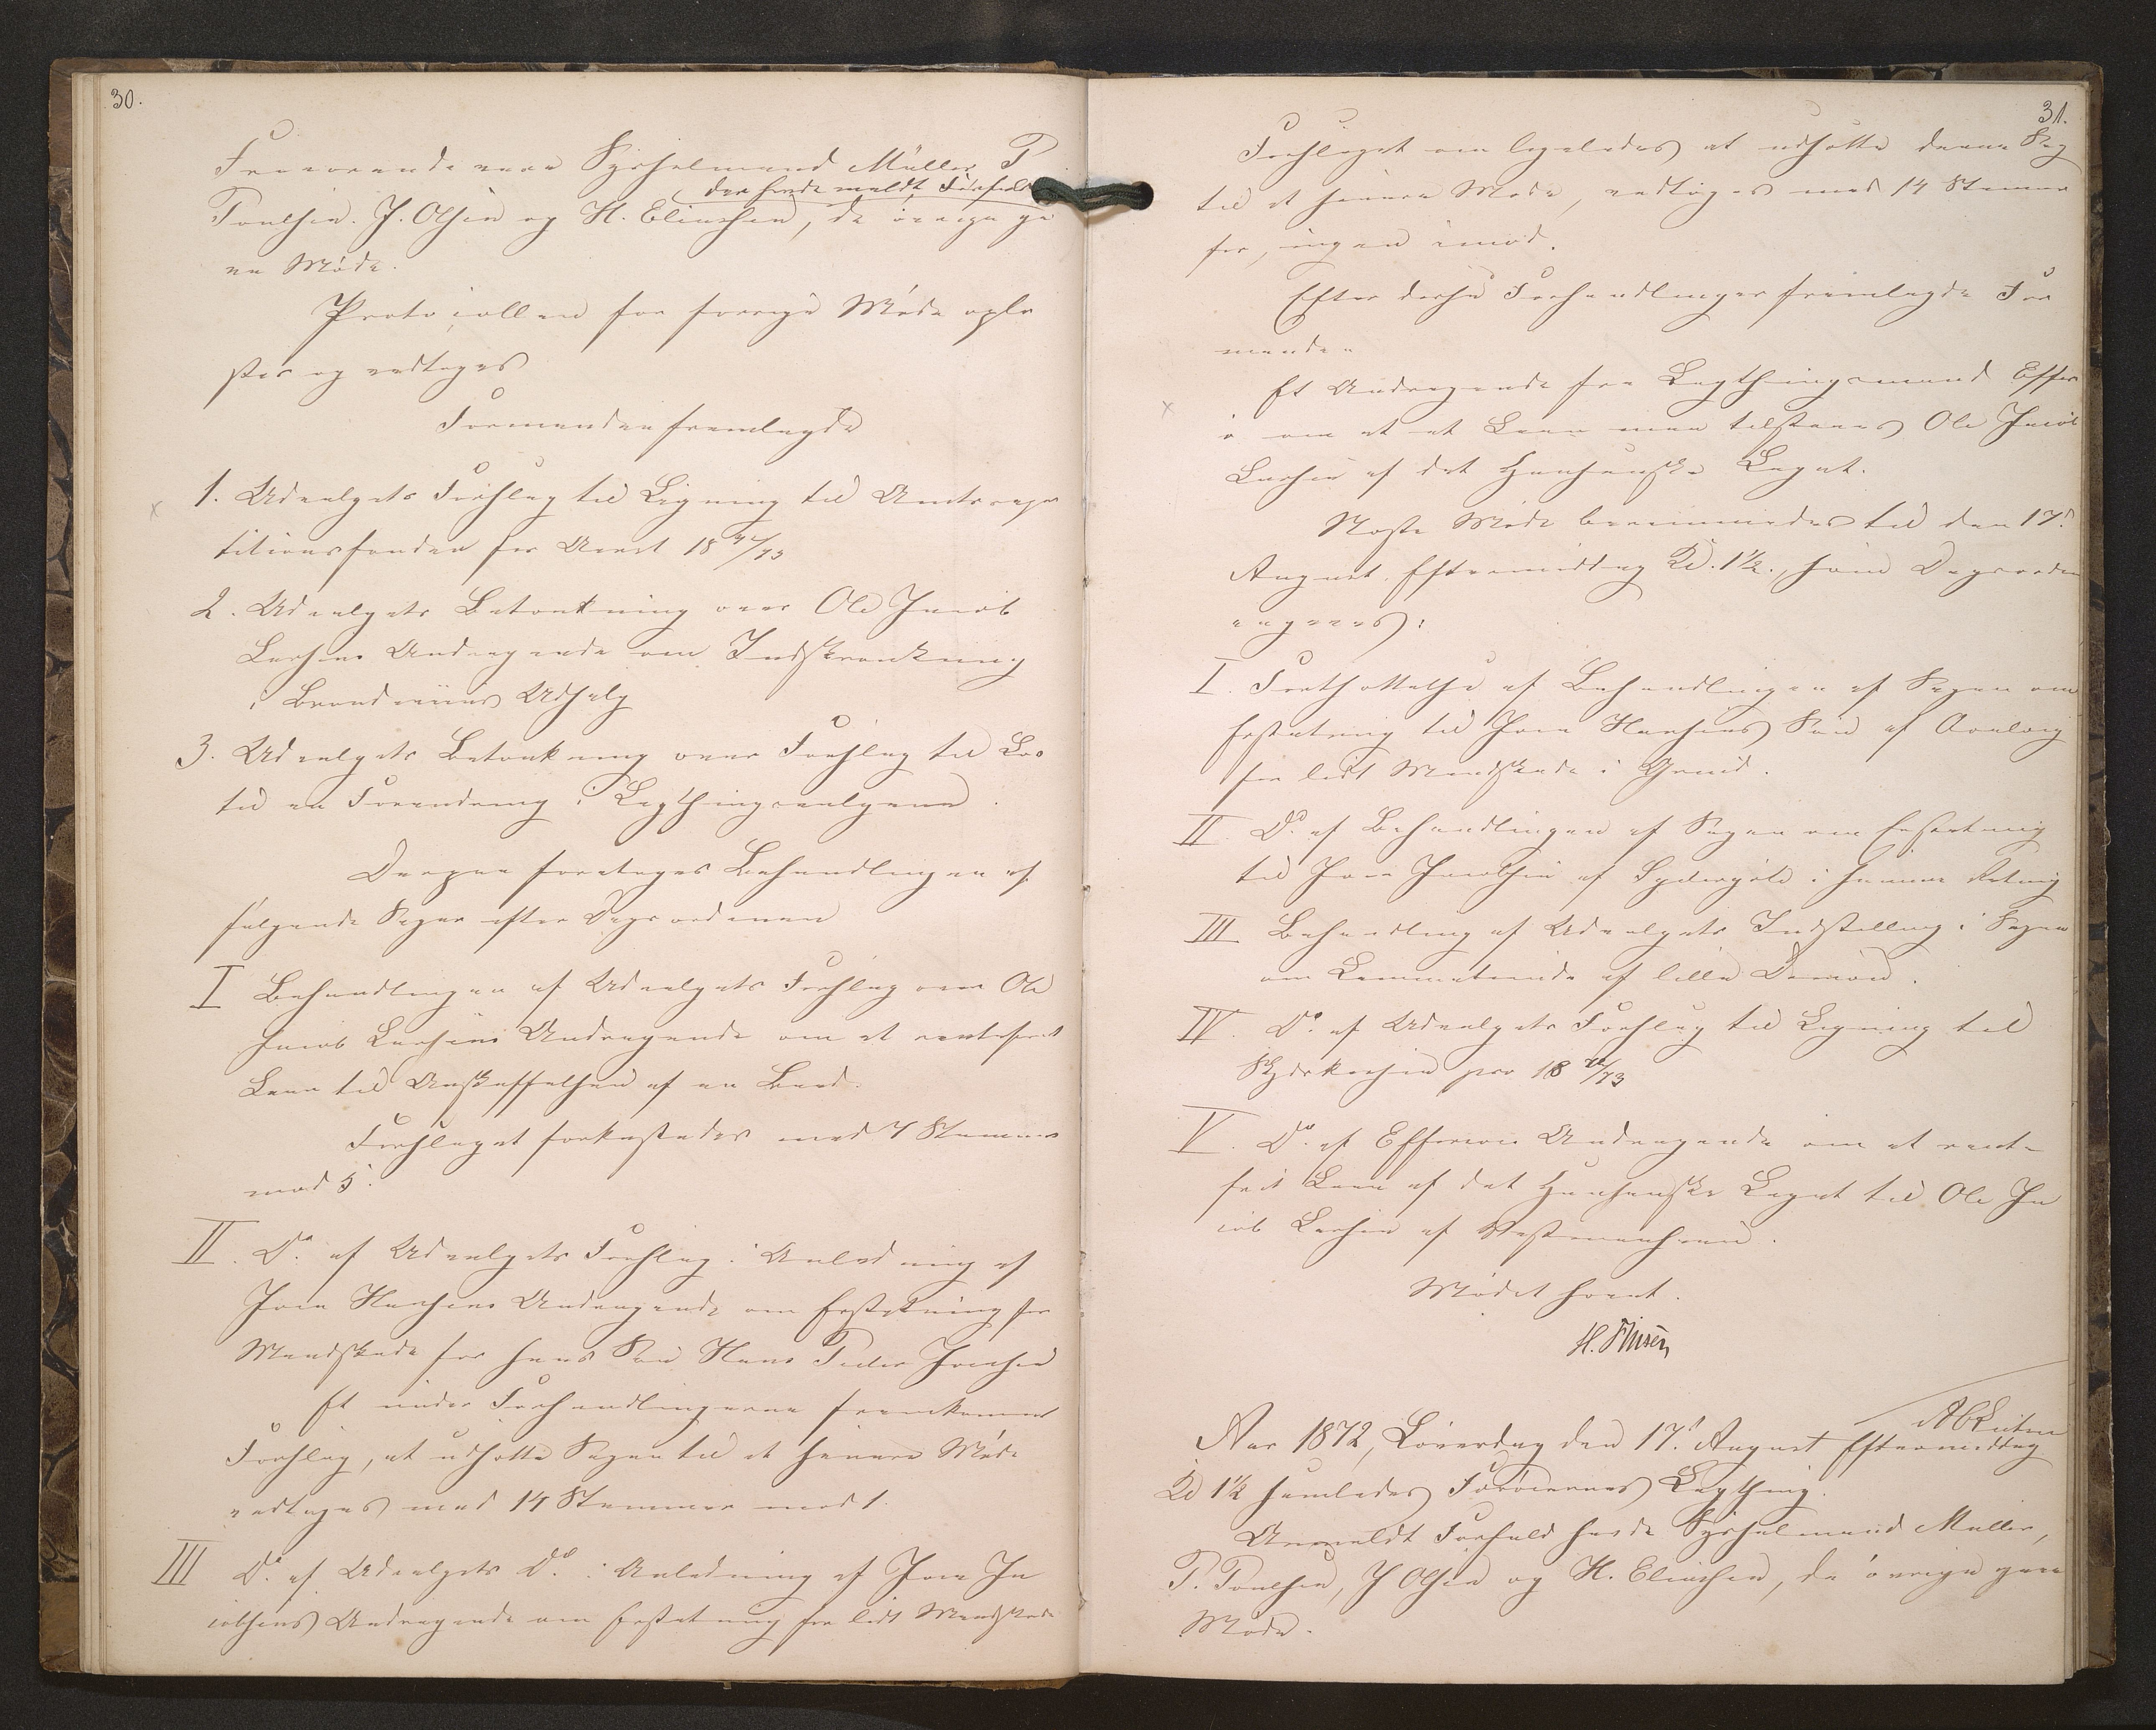 30.
Fraværende vare Sysselmand Müller, P
der havde meldt Forfald
Poulsen. J. Olsen og H. Eliassen, de øvrige ga
ve Møde.
Protocollen for forrige Møde oplæ
stes og vedtoges
Formanden fremlagde
1. Udvalgets Forslag til Ligning til Amtsrepar
titionsfonden for Aaret 1872/73
2. Udvalgets Betænkning over Ole Jacob
Larsens Andragende om Indskrænkning
i Brændeviins Udsalg
3. Udvalgets Betænkning over Forslag til Lov
til en Forandring i Lagthingsvalgene.
Derpaa foretoges Behandlingen af
følgende Sager efter Dagsordenen
I Behandlingen af Udvalgets Forslag over Ole
Jacob Larsens Andragende om et rentefrit
Laan til Anskaffelsen af en Baad.
Forslaget forkastedes med 7 Stemmer
mod 5.
II. Do. af Udvalgets Forslag i Anledning af
Joen Hansens Andragende om Erstatning for
Mandskade for hans Søn Hans Peder Joensen
Et under Forhandlingerne fremkommet
Forslag, at udsætte Sagen til et senere Møde
vedtoges med 14 Stemmer mod 1.
III Do. af Udvalgets Do. i Anledning af Joen Ja
cobsens Andragende om Erstatning for lidt Mandskade
31.
Forslaget om ligeledes at udsætte denne Sag
til et senere Møde, vedtoges med 14 Stemmer
for, ingen imod.
Efter disse Forhandlinger fremlagde For
manden
Et Andragende fra Lagthingsmand Effers
ø om at et Laan maa tilstaaes Ole Jacob
Larsen af det Hansenske Legat.
Næste Møde berammedes til den 17d
August Eftermiddag Kl. 1½., som Dagsorden
angaves:
I. Fortsættelse af Behandlingen af Sagen om
Erstatning til Joen Hansens Søn af
for lidt Mandskade i Grind.
II Do. af Behandlingen af Sagen om Erstatning
til Joen Jacobsen af Sydergøte i samme Retning
III Behandling af Udvalgets Indstilling i Sagen
om af lille Dimon.
IV. Do. af Udvalgets Forslag til Ligning til
Skydskassen pro 1872/73
V. Do. af Effersøes Andragende om et rente-
frit Laan af det Hansenske Legat til Ole Ja
cob Larsen af Vestmanhavn.
Mødet hævet.
H. Finsen
Aar 1872, Løverdag den 17d August Eftermiddag
Kl 1½ samledes Færøernes Lagthing.
Anmeldt Forfald havde Sysselmand Müller,
P. Poulsen, J Olsen og H. Eliassen, de øvrige gave
Møde.